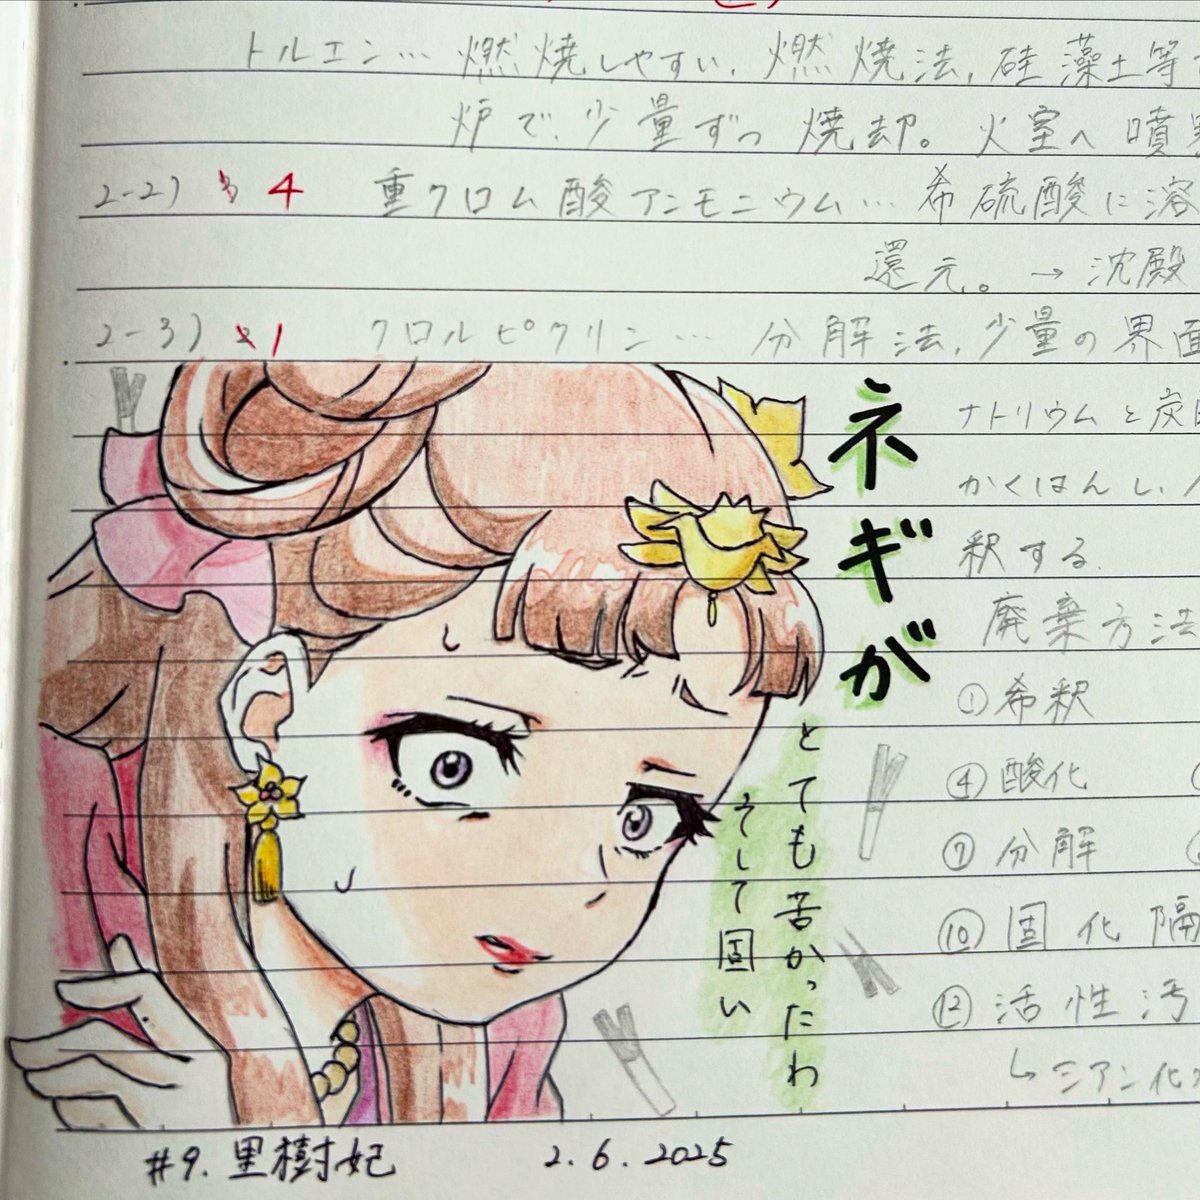 トルエン… 燃焼しやすい, 燃焼法, 硅藻土等
炉で, 少量ずつ 焼却。火室へ 噴
2-2) 4 重クロム酸アンモニウム… 希硫酸に溶
還元。→ 沈殿
2-3) 1 クロルピクリン… 分解法, 少量の界面
ナトリウムと炭
かくはんし,
釈する.
廃棄方法
①希釈
④酸化
⑦分解
⑩固化隔
⑫活性汚
↳シアン化
ネギが
とても苦かったわ
そして固い
#9. 里樹妃 2.6.2025